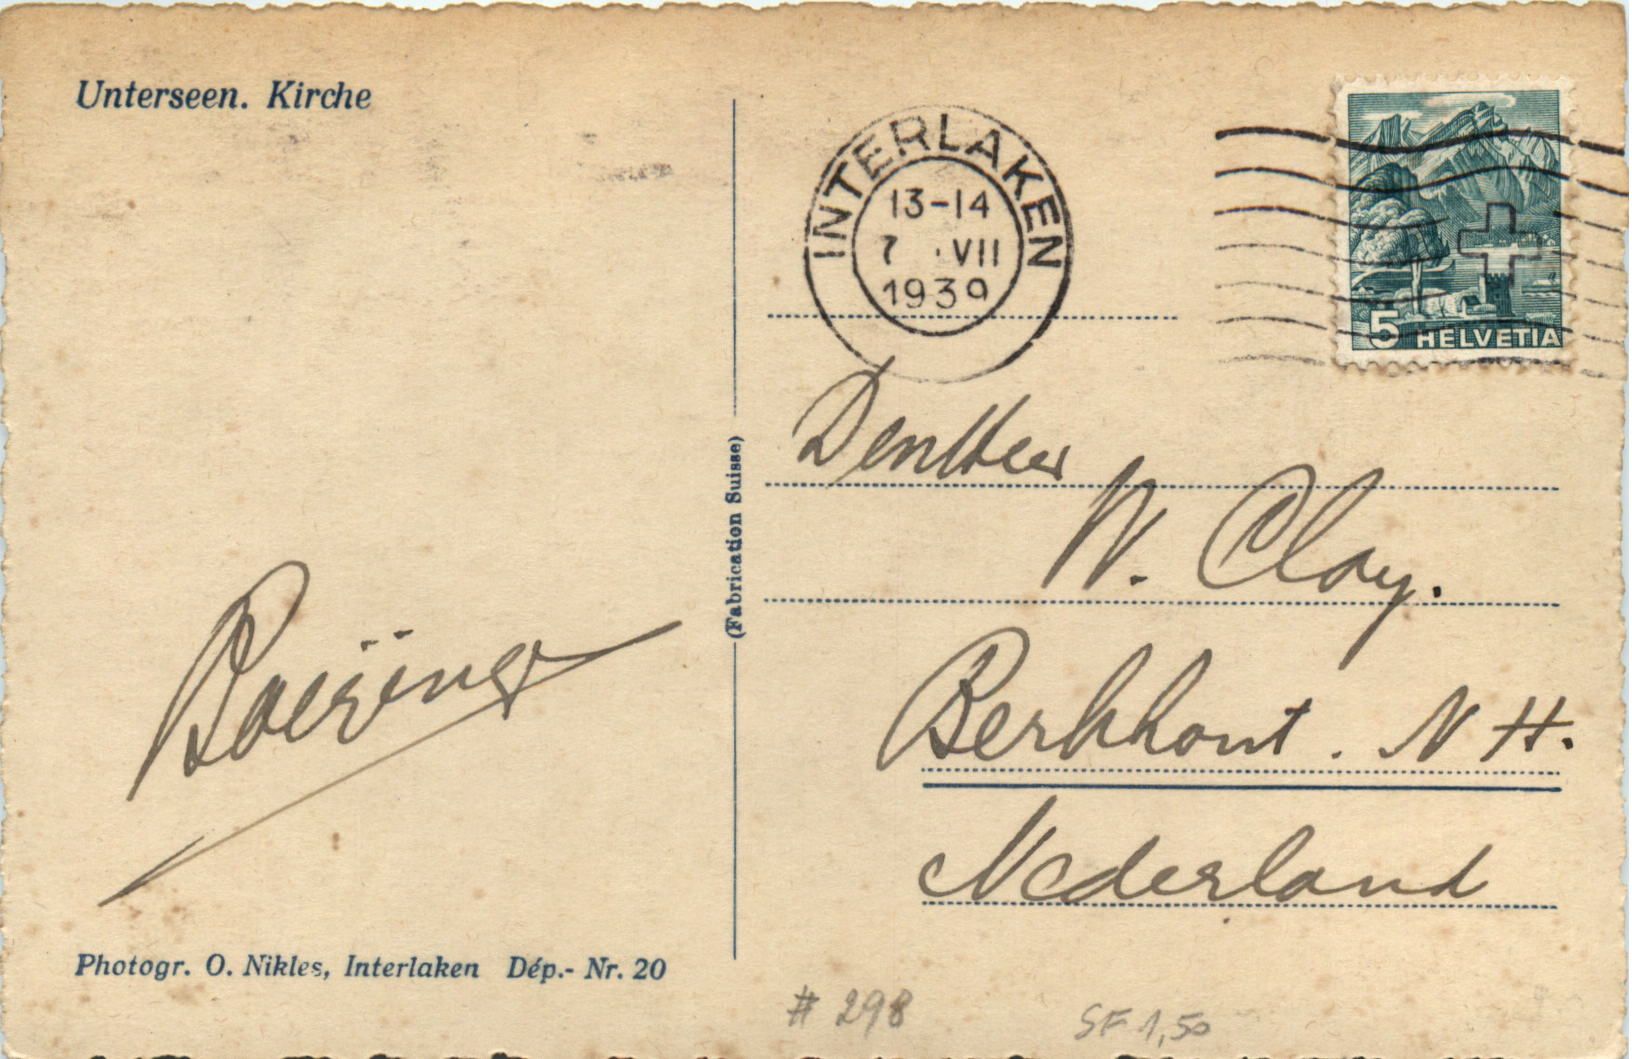 Unterseen. Kirche
INTERLAKEN
13-14
7 . VII
1939
5 HELVETIA
(Fabrication Suisse)
Den Heer
W. Clay.
Berkhout. N H.
Nederland
Photogr. O. Nikles, Interlaken Dép.- Nr. 20
# 298
SF 1,50